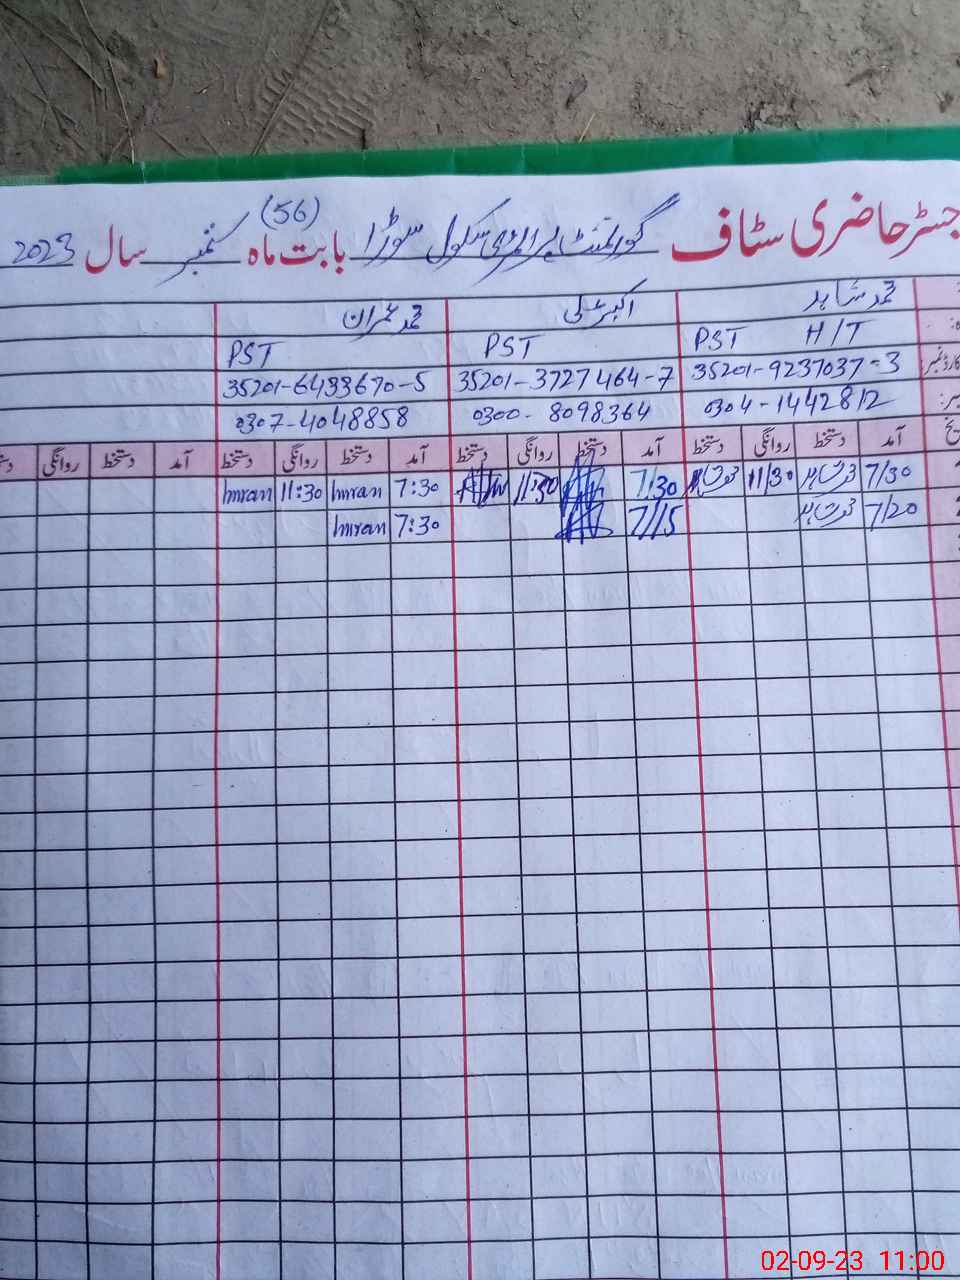 جسٹر حاضری سٹاف گورنمنٹ پرائمری سکول سوڑا (56) بابت ماہ ستمبر سال 2023
محمد شاہد اکبر علی محمد عمران
PST H/T PST PST
35201-9237037-3 35201-3727464-7 35201-6493670-5
0304-1442812 0300-8098364 0307-4048858
آمد دستخط روانگی دستخط آمد دستخط روانگی دستخط آمد دستخط روانگی دستخط آمد دستخط روانگی
7/30 11/30 7/30 11:30 7:30 Imran 11:30 Imran
7/20 7/15 7:30 Imran
02-09-23 11:00